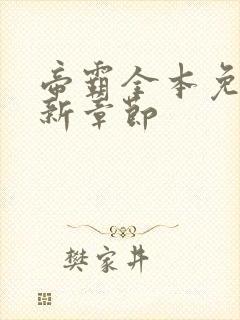 帝霸全本免
新章节
樊家井